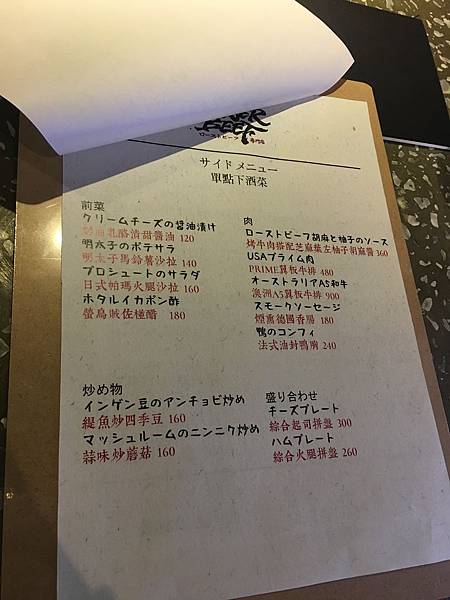 BEEF
ローストビーフ 専門店
サイド メニュー
單點下酒菜
前菜
クリームチーズの醤油漬け
奶油乳酪漬甜醬油 120
明太子のポテサラ
明太子馬鈴薯沙拉 140
プロシュートのサラダ
日式帕瑪火腿沙拉 160
ホタルイカポン酢
螢烏賊佐橙醋 180
肉
ローストビーフ胡麻と柚子のソース
烤牛肉搭配芝麻葉左柚子胡麻醬 360
USAプライム肉
PRIME翼板牛排 480
オーストラリアA5和牛
澳洲A5翼板牛排 900
スモークソーセージ
煙熏德國香腸 180
鴨のコンフィ
法式油封鴨胸 240
炒め物
インゲン豆のアンチョビ炒め
鯷魚炒四季豆 160
マッシュルームのニンニク炒め
蒜味炒蘑菇 160
盛り合わせ
チーズプレート
綜合起司拼盤 300
ハムプレート
綜合火腿拼盤 260